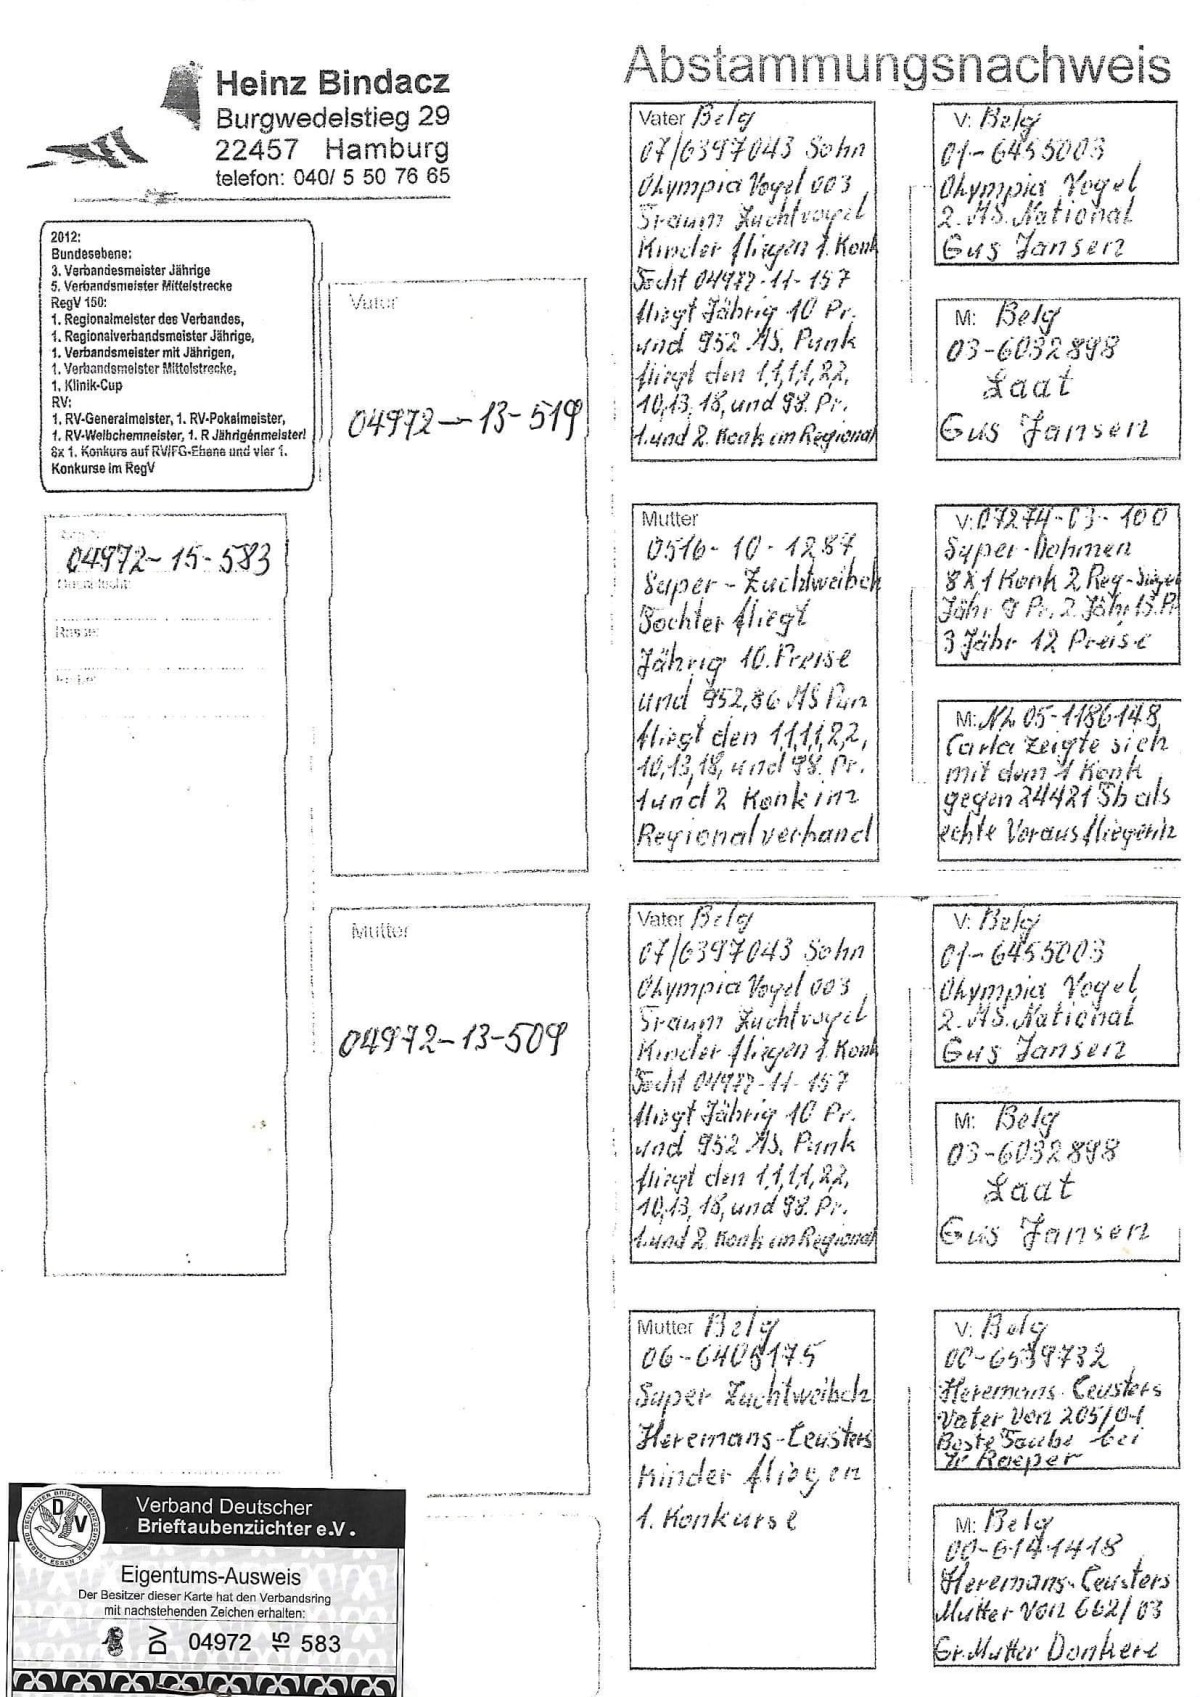 Heinz Bindacz
Burgwedelstieg 29
22457 Hamburg
telefon: 040/ 5 50 76 65
2012:
Bundesebene:
3. Verbandesmeister Jährige
5. Verbandsmeister Mittelstrecke
RegV 150:
1. Regionalmeister des Verbandes,
1. Regionalverbandsmeister Jährige,
1. Verbandsmeister mit Jährigen,
1. Verbandsmeister Mittelstrecke,
1. Klinik-Cup
RV:
1. RV-Generalmeister, 1. RV-Pokalmeister,
1. RV-Weibchemneister, 1. R Jährigenmeister!
8x 1. Konkurs auf RV/FG-Ebene und vier 1.
Konkurse im RegV
04972-15-583
Rasse:
Vater
04972-13-519
Mutter
04972-13-509
Abstammungsnachweis
Vater Belg
07/6397043 Sohn
Olympia Vogel 003
Traum Zuchtvogel
Kinder fliegen 1. Konk
Tocht 04972-11-157
fliegt Jährig 10 Pr.
und 952 AS. Punk
fliegt den 1,1,1,1,2,2,
10,13, 18, und 98. Pr.
1. und 2. Konk im Regional
V: Belg
01-6455003
Olympia Vogel
2. AS. National
Gus Jansen
M: Belg
03-6032898
Laat
Gus Jansen
Mutter
0516-10-1287
Super-Zuchtweibch
Tochter fliegt
Jährig 10. Preise
und 952,86 AS Pun
fliegt den 1,1,1,1,2,2,
10,13,18, und 98. Pr.
1 und 2 Konk im
Regionalverband
V: 07274-03-100
Super-Dohmen
8X1 Konk 2 Reg-Sieger
Jähr 9 Pr. 2 Jähr 13. Pr
3 Jähr 12 Preise
M: NL 05-1186148
Carla zeigte sich
mit dem 1 Konk
gegen 24421 Tb als
echte Voraus fliegerin
Vater Belg
07/6397043 Sohn
Olympia Vogel 003
Traum Zuchtvogel
Kinder fliegen 1. Konk
Tocht 04972-11-157
fliegt Jährig 10 Pr.
und 952 AS. Punk
fliegt den 1,1,1,1,2,2,
10,13, 18, und 98. Pr.
1. und 2. Konk im Regional
V: Belg
01-6455003
Olympia Vogel
2. AS. National
Gus Jansen
M: Belg
03-6032898
Laat
Gus Jansen
Mutter Belg
06-6408175
Super Zuchtweibch
Heremans-Ceusters
Kinder fliegen
1. Konkurse
V: Belg
00-6539732
Heremans-Ceusters
Vater von 205/04
Beste Taube bei
Raeper
M: Belg
00-6141418
Heremans-Ceusters
Mutter von 662/03
Gr. Mutter Donkere
DEUTSCHER BRIEFTAUBENZÜCHTER E.V. ESSEN VERBAND
DV
Verband Deutscher
Brieftaubenzüchter e.V.
Eigentums-Ausweis
Der Besitzer dieser Karte hat den Verbandsring
mit nachstehenden Zeichen erhalten:
DV 04972 15 583